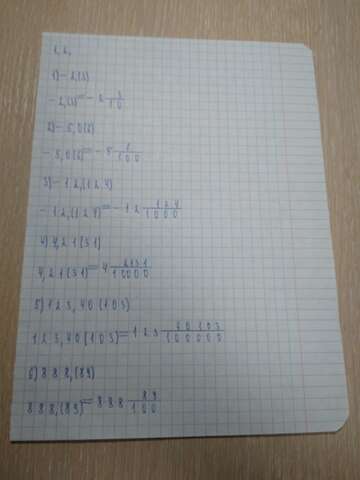 1) - 2,(3)
- 2,(3) = - 2 3/10
2) - 5,0(2)
- 5,0(2) = - 5 2/100
3) - 12,(124)
- 12,(124) = - 12 124/1000
4) 4,21(31)
4,21(31) = 4 2131/10000
5) 123,40(103)
123,40(103) = 123 40103/100000
6) 888,(89)
888,(89) = 888 89/100